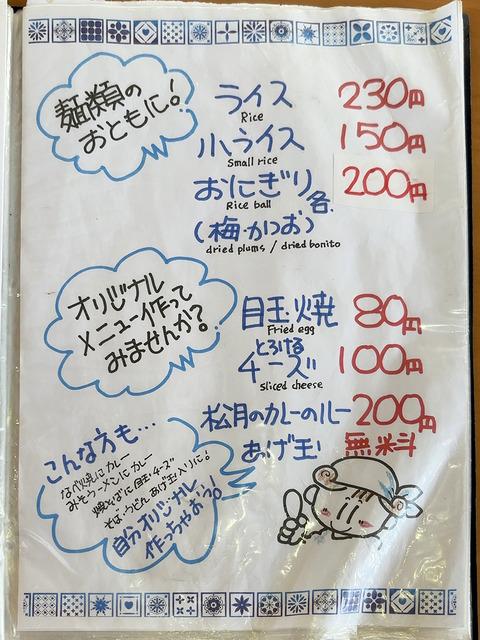 麺類の
おともに!
ライス 230円
Rice
小ライス 150円
Small rice
おにぎり各. 200円
Rice ball
(梅・かつお)
dried plums / dried bonito
オリジナル
メニュー作って
みませんか?
目玉焼 80円
Fried egg
とろける
チーズ 100円
Sliced cheese
松月のカレーのルー 200円
あげ玉 無料
こんな方も…
なべ焼にカレー
みそラーメンにカレー
焼そばに目玉・チーズ
そば、うどんあげ玉入りに!
自分オリジナル
作っちゃおう!